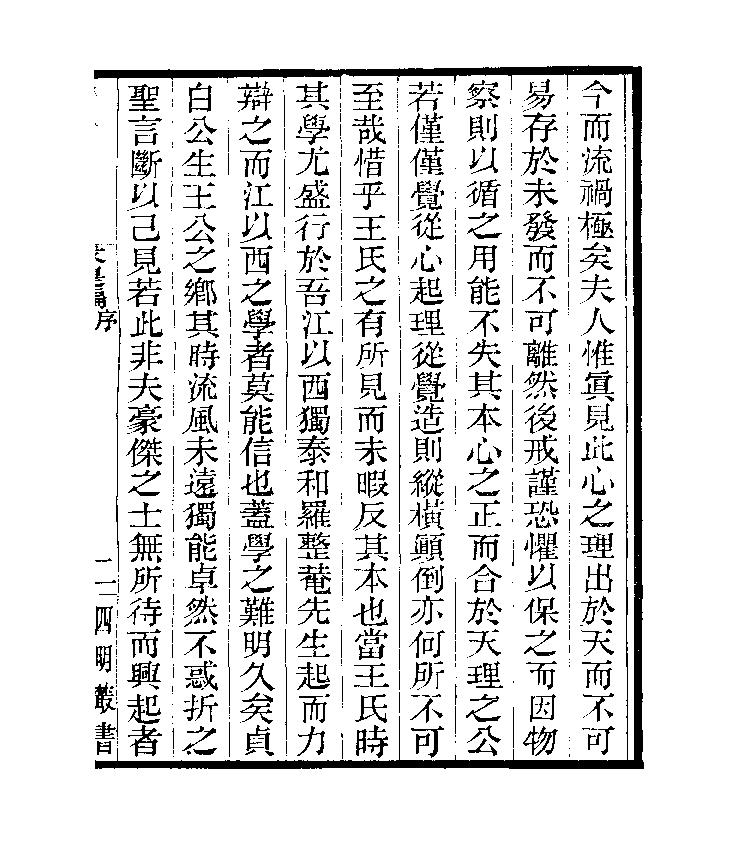 今而流禍極矣夫人惟眞見此心之理出於天而不可
易存於未發而不可離然後戒謹恐懼以保之而因物
察則以循之用能不失其本心之正而合於天理之公
若僅僅覺從心起理從覺造則縱橫顛倒亦何所不可
至哉惜乎王氏之有所見而未暇反其本也當王氏時
其學尤盛行於吾江以西獨泰和羅整菴先生起而力
辯之而江以西之學者莫能信也蓋學之難明久矣貞
白公生王公之鄉其時流風未遠獨能卓然不惑折之
聖言斷以己見若此非夫豪傑之士無所待而興起者
序
二
四明叢書